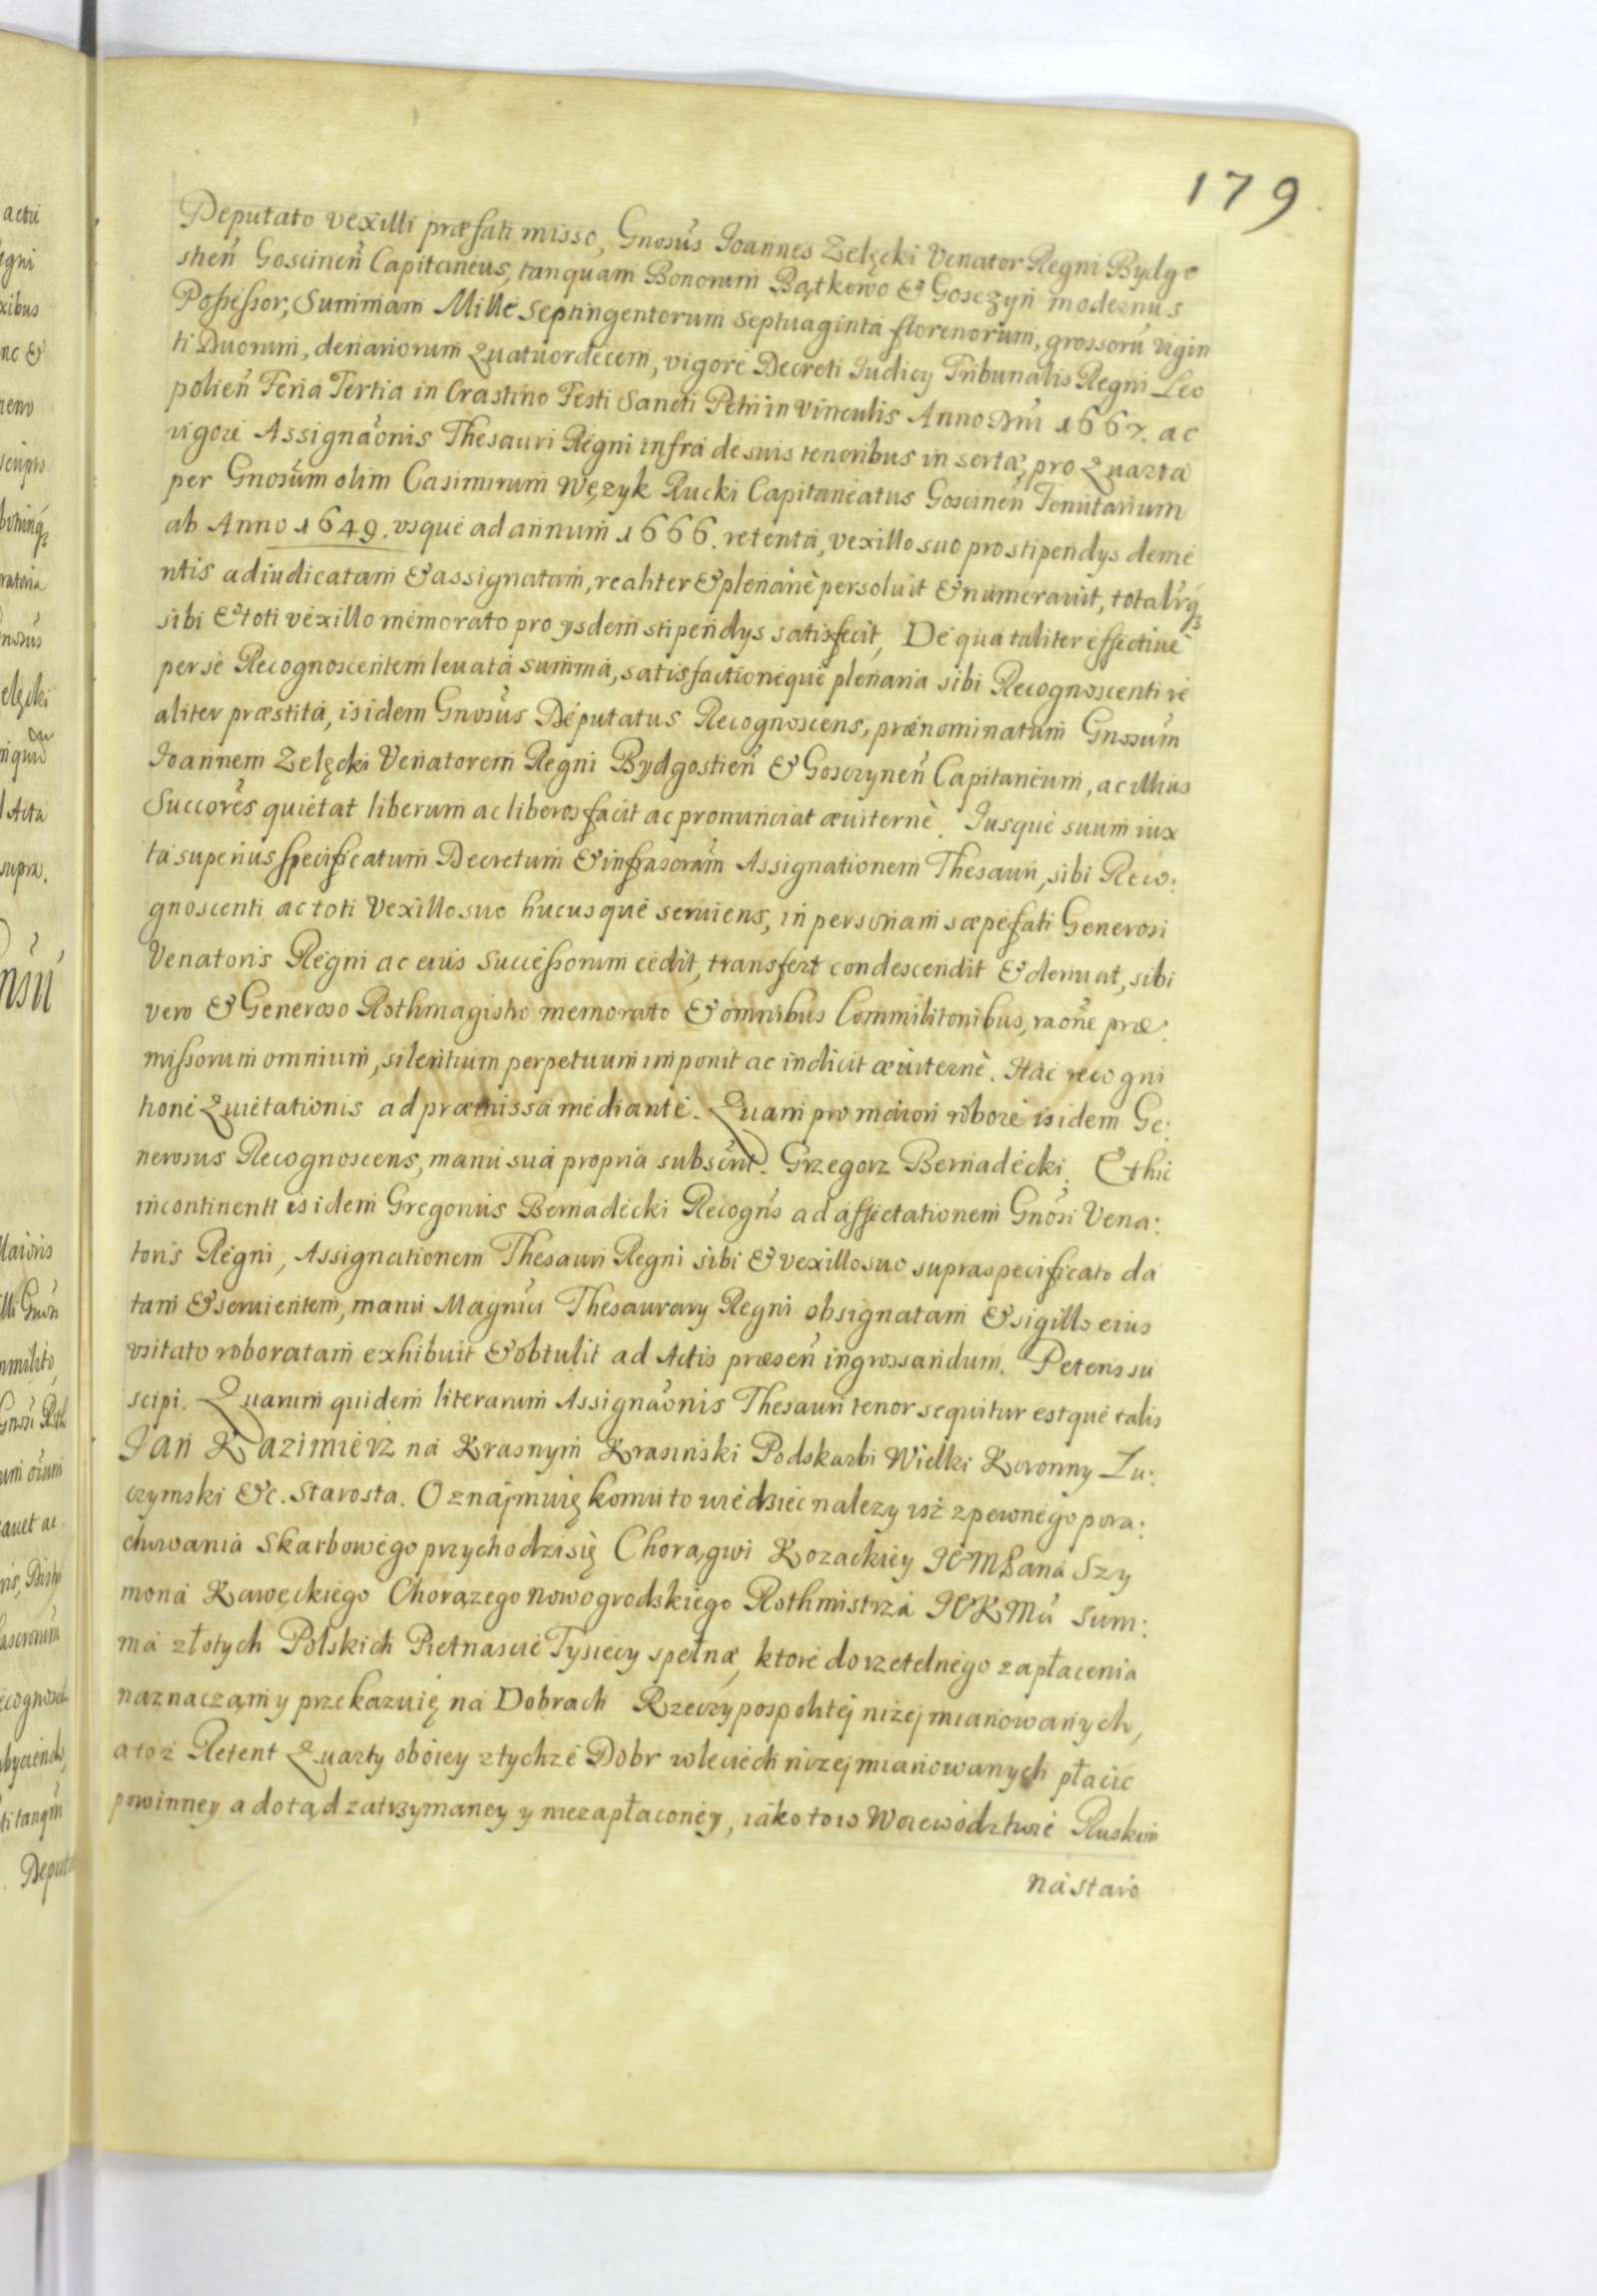 179
Deputato vexilli præfati misso, Gnosus Joannes Zelęcki Venator Regni Bydgo
stien Goscinen Capitaneus, tanquam Bonorum Bątkowo & Gosczyn modernus
Possessor, Summam Mille Septingentorum Septuaginta florenorum, grossorū vigin
ti Duorum, denariorum Quatuordecem, vigore Decreti Judicij Tribunalis Regni Leo
polien Feria Tertia in Crastino Festi Sancti Petri in Vinculis Anno Dni 1667. ac
vigore Assignaonis Thesauri Regni infra de suis tenoribus in sertæ, pro Quarta
per Gnosum olim Casimirum Wężyk Rucki Capitaneatus Goscinen Tenutarium
ab Anno 1649. vsque ad annum 1666. retenta, vexillo suo pro stipendys deme
ritis adiudicatam & assignatam, realiter & plenariè persoluit & numerauit, totalrq3
sibi & toti vexillo memorato pro ysdem stipendys satisfecit, De qua taliter effectiuè
per se Recognoscentem leuata summa, satisfactioneque plenaria sibi Recognoscenti re
aliter præstita, isidem Gnosus Deputatus Recognoscens, prænominatum Gnosum
Joannem Zelęcki Venatorem Regni Bydgostien & Gosczynen Capitaneum, ac illius
Succores quietat liberum ac liberos facit ac pronunciat æuiternè. Jusque suum iux
ta superius specificatum Decretum & infrascram Assignationem Thesauri, sibi Reco:
gnoscenti ac toti Vexillo suo hucusque seruiens, in personam sæpefati Generosi
Venatoris Regni ac eius Successorum cedit, transfert condescendit & deriuat, sibi
vero & Generoso Rothmagistro memorato & omnibus Commilitonibus, raone præ:
missorum omnium, silentium perpetuum imponit ac indicit æuiternè. Hac recogni
tione Quietationis ad præmissa mediante. Quam pro maiori robore isidem Ge:
nerosus Recognoscens, manu sua propria subscrit. Grzegorz Bernadecki. Et hic
incontinenti isidem Gregorius Bernadecki Recogns ad affectationem Gnosi Vena:
toris Regni, Assignationem Thesauri Regni sibi & vexillo suo supraspecificato da
tam & seruientem, manu Magnci Thesaurary Regni obsignatam & sigillo eius
vsitato roboratam exhibuit & obtulit ad Actis præsen ingrossandum. Petens su
scipi. Quarum quidem literarum Assignaonis Thesauri tenor sequitur estque talis
Jan Kazimierz na Krasnym Krasinski Podskarbi Wielki Koronny Lu:
czymski &c. Starosta. Oznajmuię komu to wiedziec nalezy isz z pewnego pora:
chowania Skarbowego przychodzi się Chorągwi Kozackiey JEMPana Szy
mona Kaweckiego Chorązego nowogrodskiego Rothmistrza JKMci Sum:
ma złotych Polskich Pietnascie Tysięcy spełna, ktore do rzetelnego zapłacenia
naznaczam y przekazuię na Dobrach Rzeczypospolitej nizej mianowanych,
a to z Retent Quarty oboiey z tychze Dobr w leciech nizej mianowanych płacic
powinney a dotąd zatrzymaney y niezapłaconey, iako to w Woiewodztwie Ruskim
na staro